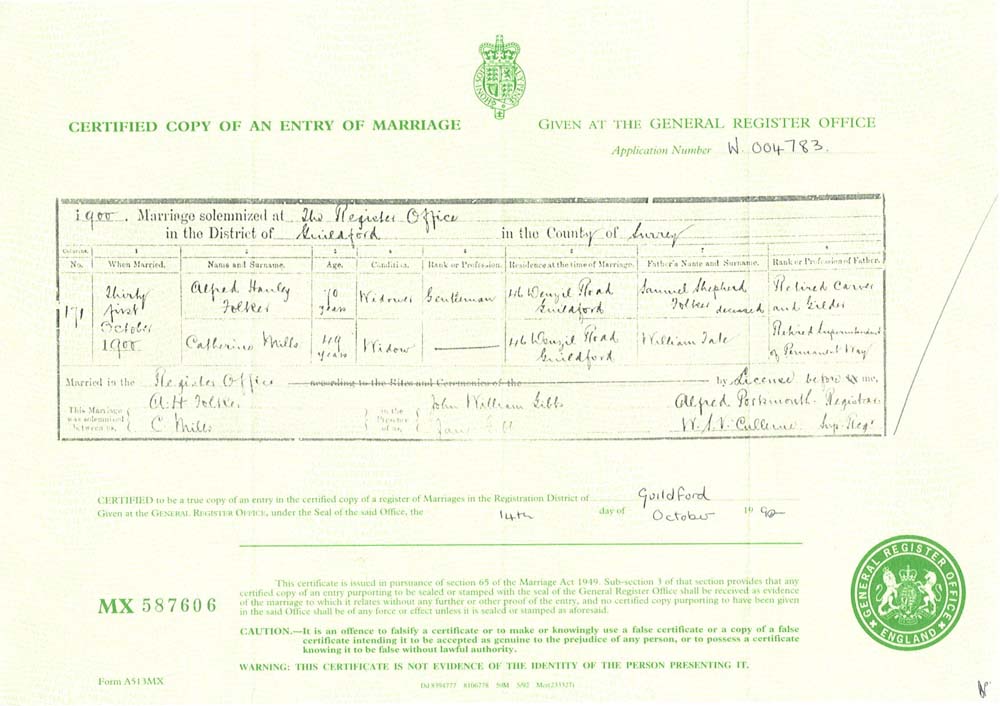 CERTIFIED COPY OF AN ENTRY OF MARRIAGE
GIVEN AT THE GENERAL REGISTER OFFICE
Application Number W. 004783.
1900. Marriage solemnized at The Register Office
in the District of Guildford in the County of Surrey
Columns. 1 2 3 4 5 6 7 8
No. When Married. Name and Surname. Age. Condition. Rank or Profession. Residence at the time of Marriage. Father's Name and Surname. Rank or Profession of Father.
171 Thirty first October 1900 Alfred Hanley Folker 70 years Widower Gentleman Road Guildford Samuel Shepherd Folker deceased Retired Carver and Gilder
Catherine Mills 49 years Widow Road Guildford William Tate Retired Superintendent of Permanent Way
Married in the Register Office according to the Rites and Ceremonies of the by License before me,
This Marriage was solemnized between us, A. H. Folker
C Mills
in the Presence of us, John William Gibb
Alfred Portsmouth Registrar
W. S. V. Cullerne Sup. Regr
CERTIFIED to be a true copy of an entry in the certified copy of a register of Marriages in the Registration District of Guildford
Given at the GENERAL REGISTER OFFICE, under the Seal of the said Office, the 14th day of October 1992
MX 587606
This certificate is issued in pursuance of section 65 of the Marriage Act 1949. Sub-section 3 of that section provides that any
certified copy of an entry purporting to be sealed or stamped with the seal of the General Register Office shall be received as evidence
of the marriage to which it relates without any further or other proof of the entry, and no certified copy purporting to have been given
in the said Office shall be of any force or effect unless it is sealed or stamped as aforesaid.
CAUTION.—It is an offence to falsify a certificate or to make or knowingly use a false certificate or a copy of a false
certificate intending it to be accepted as genuine to the prejudice of any person, or to possess a certificate
knowing it to be false without lawful authority.
WARNING: THIS CERTIFICATE IS NOT EVIDENCE OF THE IDENTITY OF THE PERSON PRESENTING IT.
GENERAL REGISTER OFFICE
ENGLAND
Form A513MX
Dd 8394777 8106778 50M 5/92 Mcr(233327)